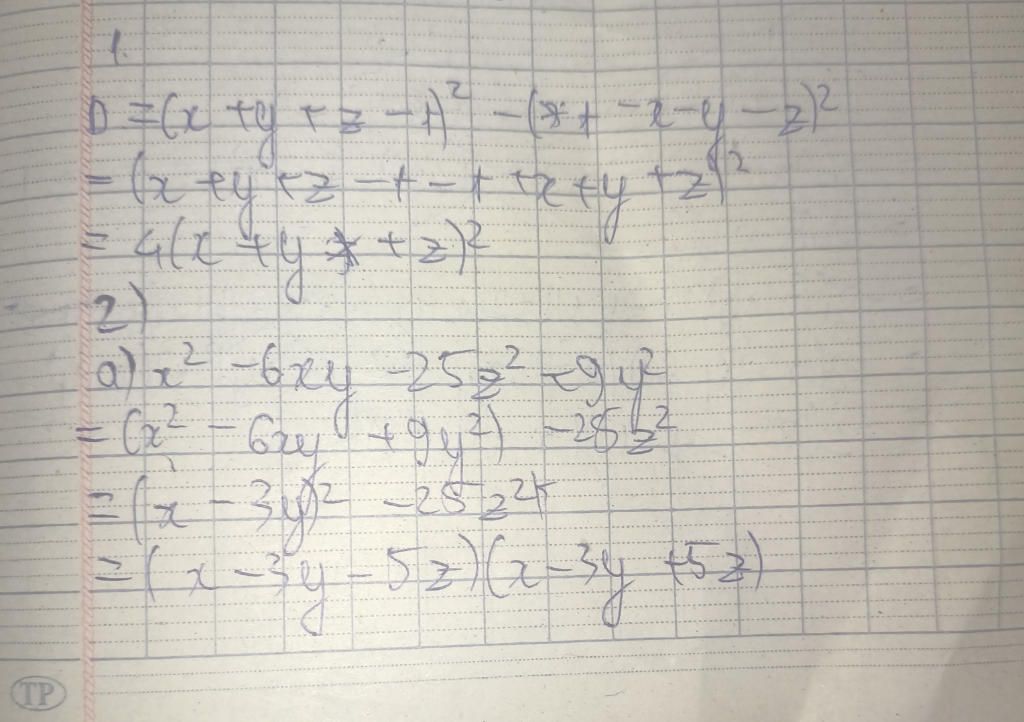 1.
D = (x + y + z - 1)² - (1 - x - y - z)²
= (x + y + z - 1 - 1 + x + y + z)²
= 4(x + y + z)²
2)
a) x² - 6xy - 25z² + 9y²
= (x² - 6xy + 9y²) - 25z²
= (x - 3y)² - 25z²
= (x - 3y - 5z)(x - 3y + 5z)
TP